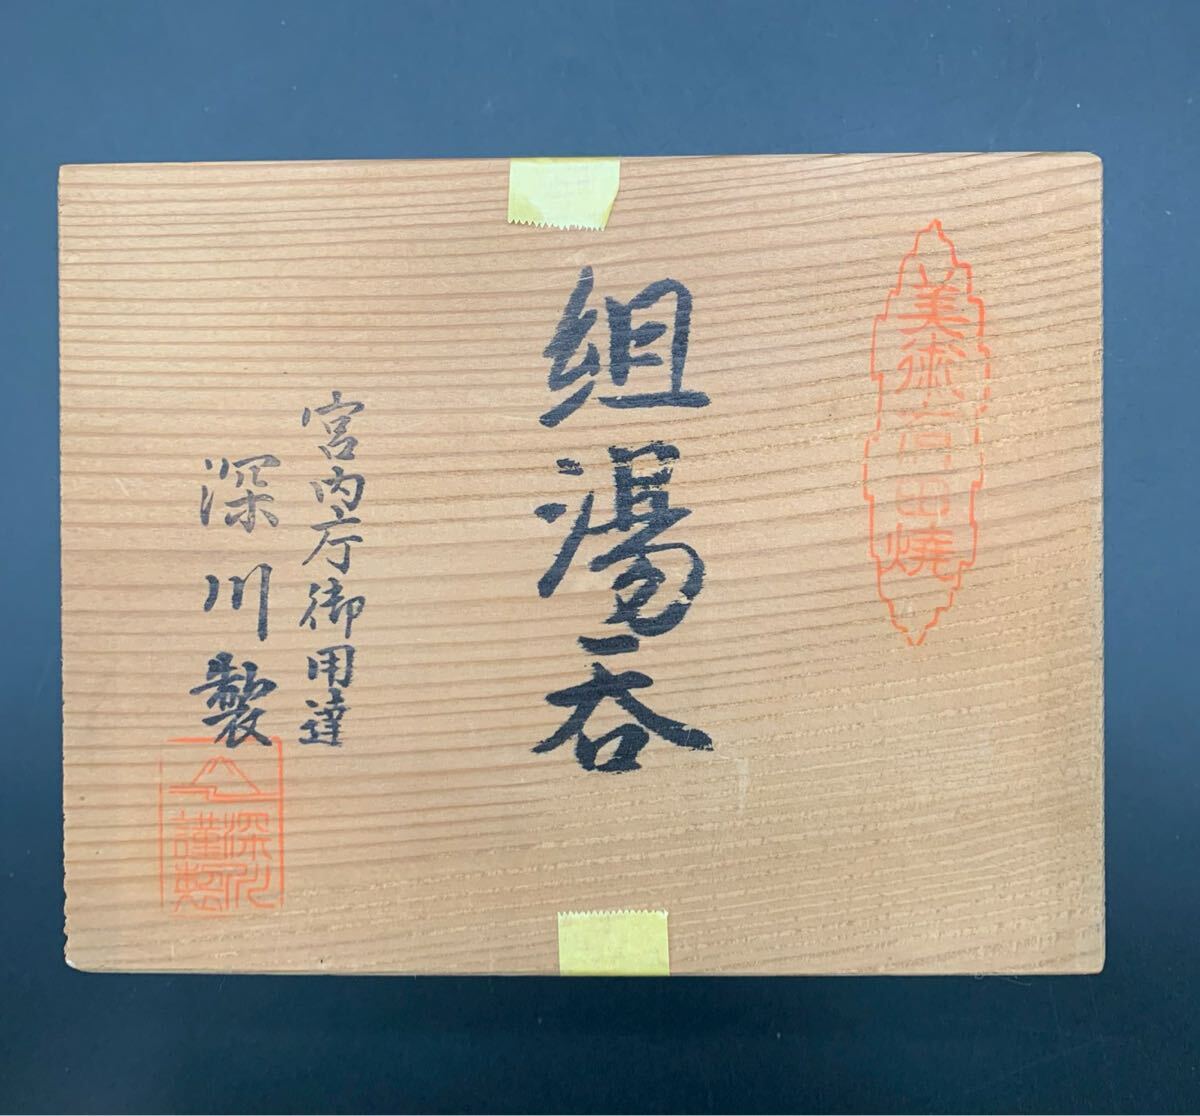 美術有田焼
組湯呑
宮内庁御用達
深川製
深川
謹製